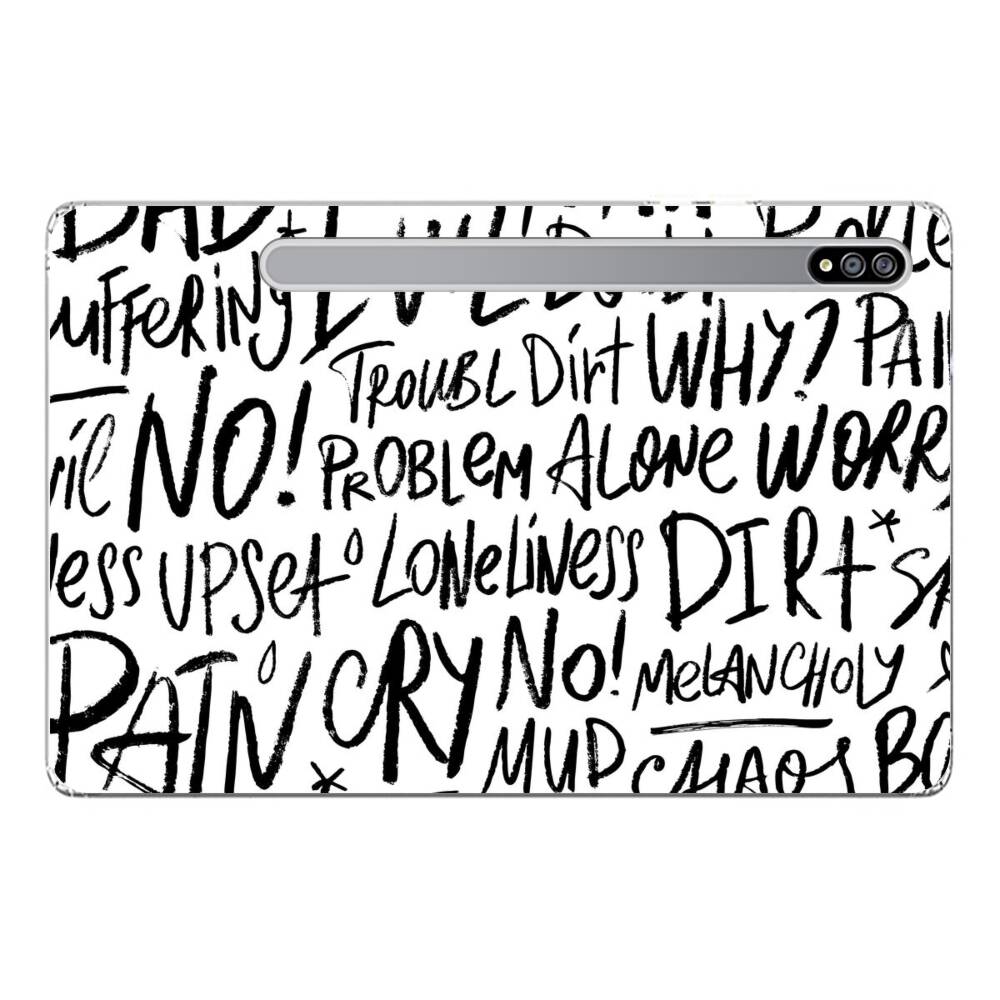 BAD*
UFFERING EVIL
TROUBL DIRT WHY? PAI
VIL NO! PROBLEM ALONE WORR
LESS UPSET LONELINESS DIRT* SA
PAIN CRY NO! MELANCHOLY
MUD CHAOS BO